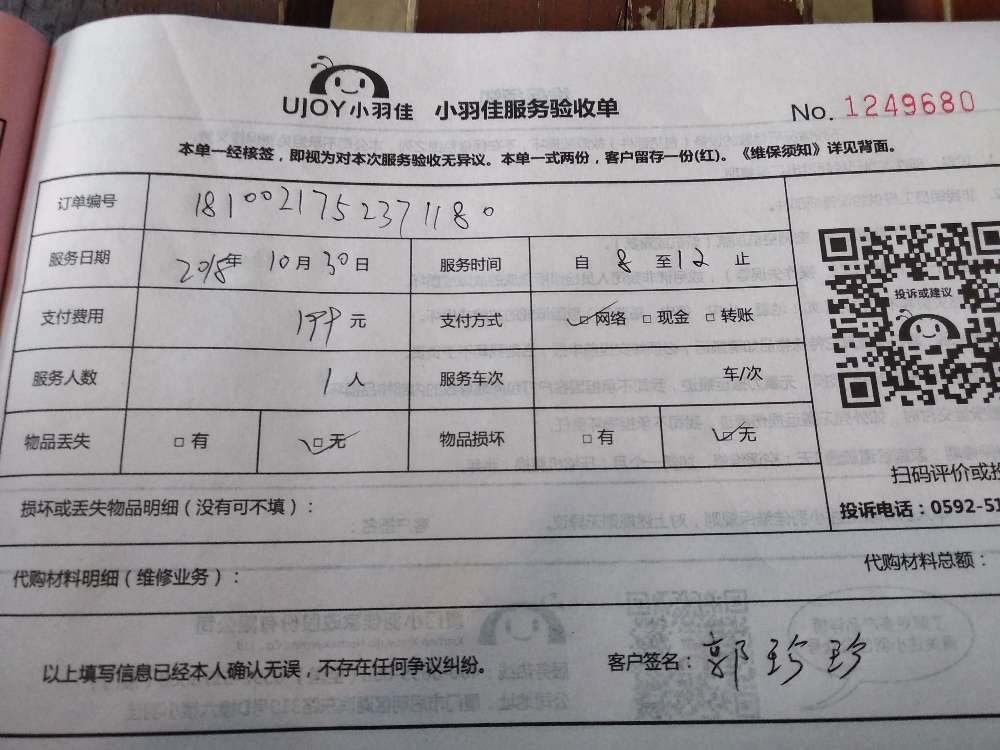 UJOY小羽佳 小羽佳服务验收单 No. 1249680
本单一经核签，即视为对本次服务验收无异议。本单一式两份，客户留存一份(红)。《维保须知》详见背面。
订单编号 1810021752371180
服务日期 2018年 10月30日 服务时间 自 8 至12 止
投诉或建议
支付费用 199元 支付方式 ☑网络 □现金 □转账
服务人数 1人 服务车次 车/次
物品丢失 □有 ☑无 物品损坏 □有 ☑无
扫码评价或投
损坏或丢失物品明细（没有可不填）： 投诉电话：0592-51
代购材料明细（维修业务）： 代购材料总额：
以上填写信息已经本人确认无误，不存在任何争议纠纷。 客户签名：郭珍珍